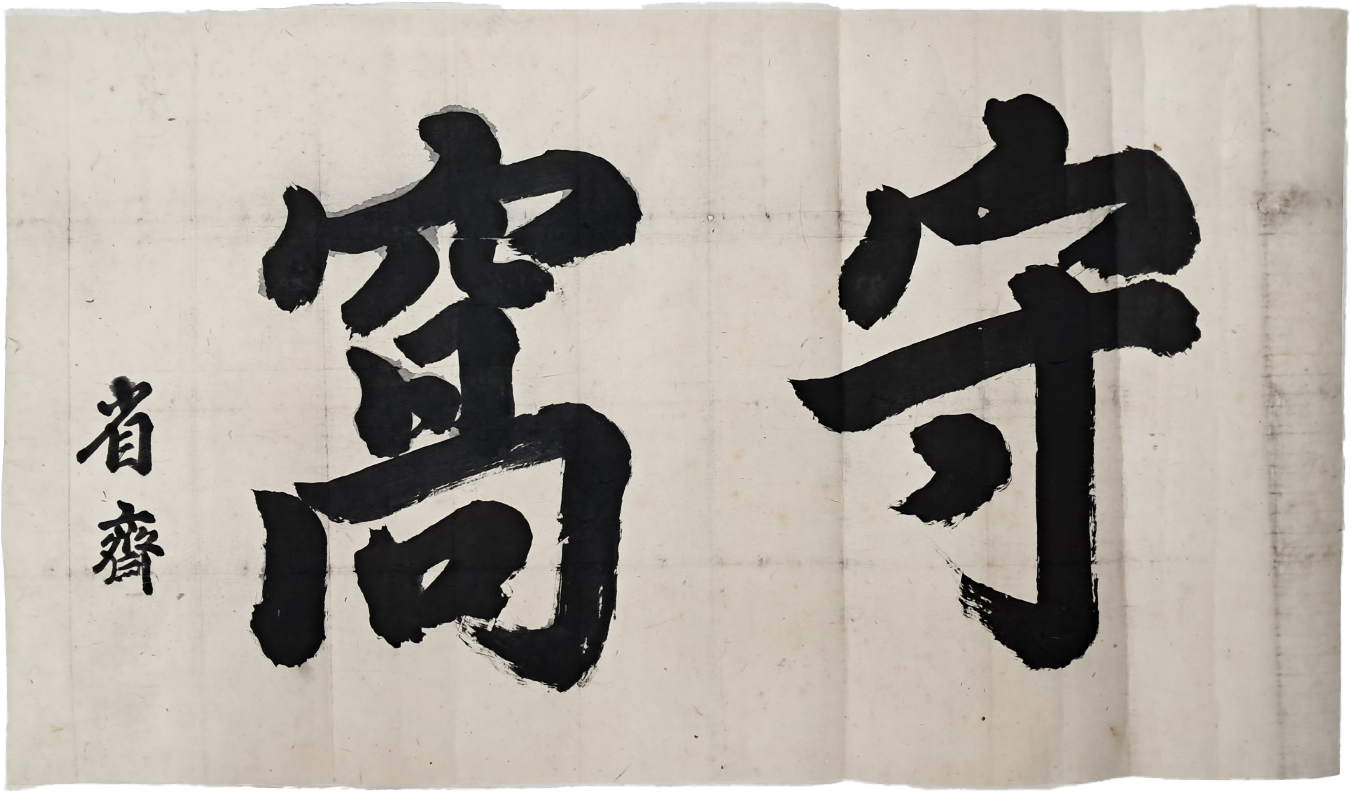 守窩
省齋